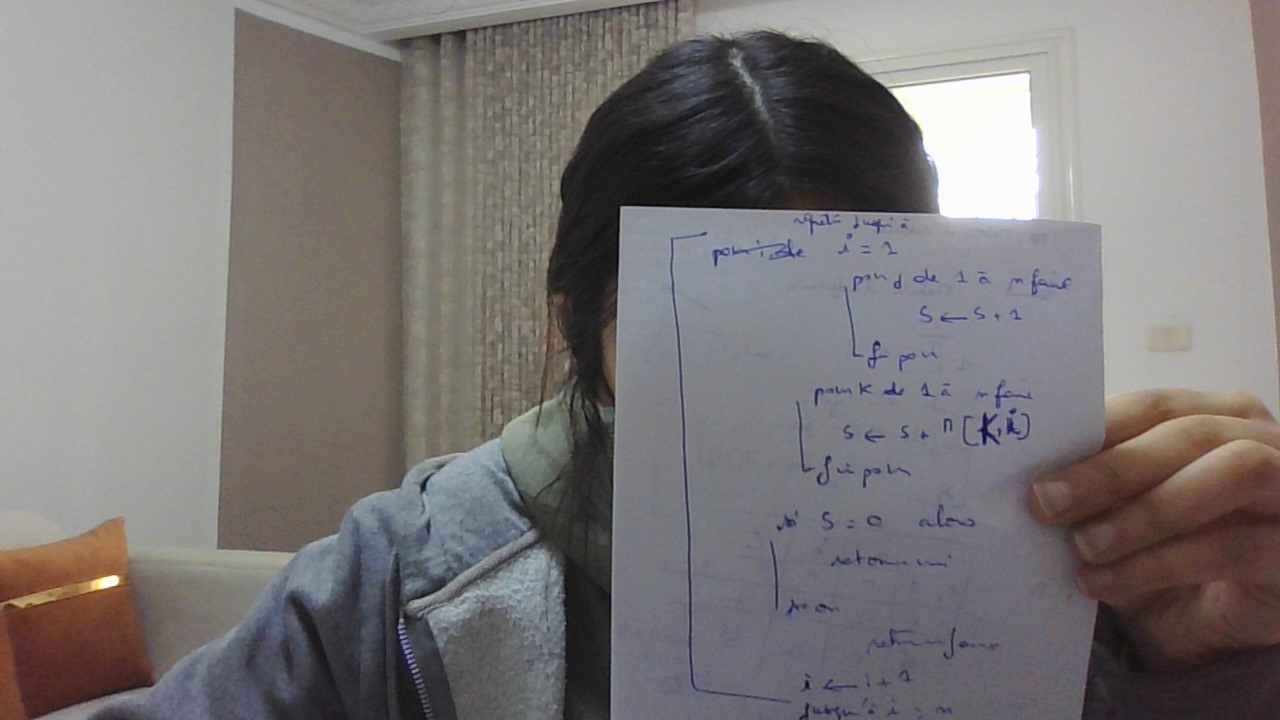 répéter jusqu'à
pour i de i = 1
pour j de 1 à n faire
S ← S + 1
fin pour
pour K de 1 à n faire
S ← S + M [K, i]
fin pour
si S = 0 alors
retourn vrai
sinon
retourn faux
i ← i + 1
jusqu'à i = n